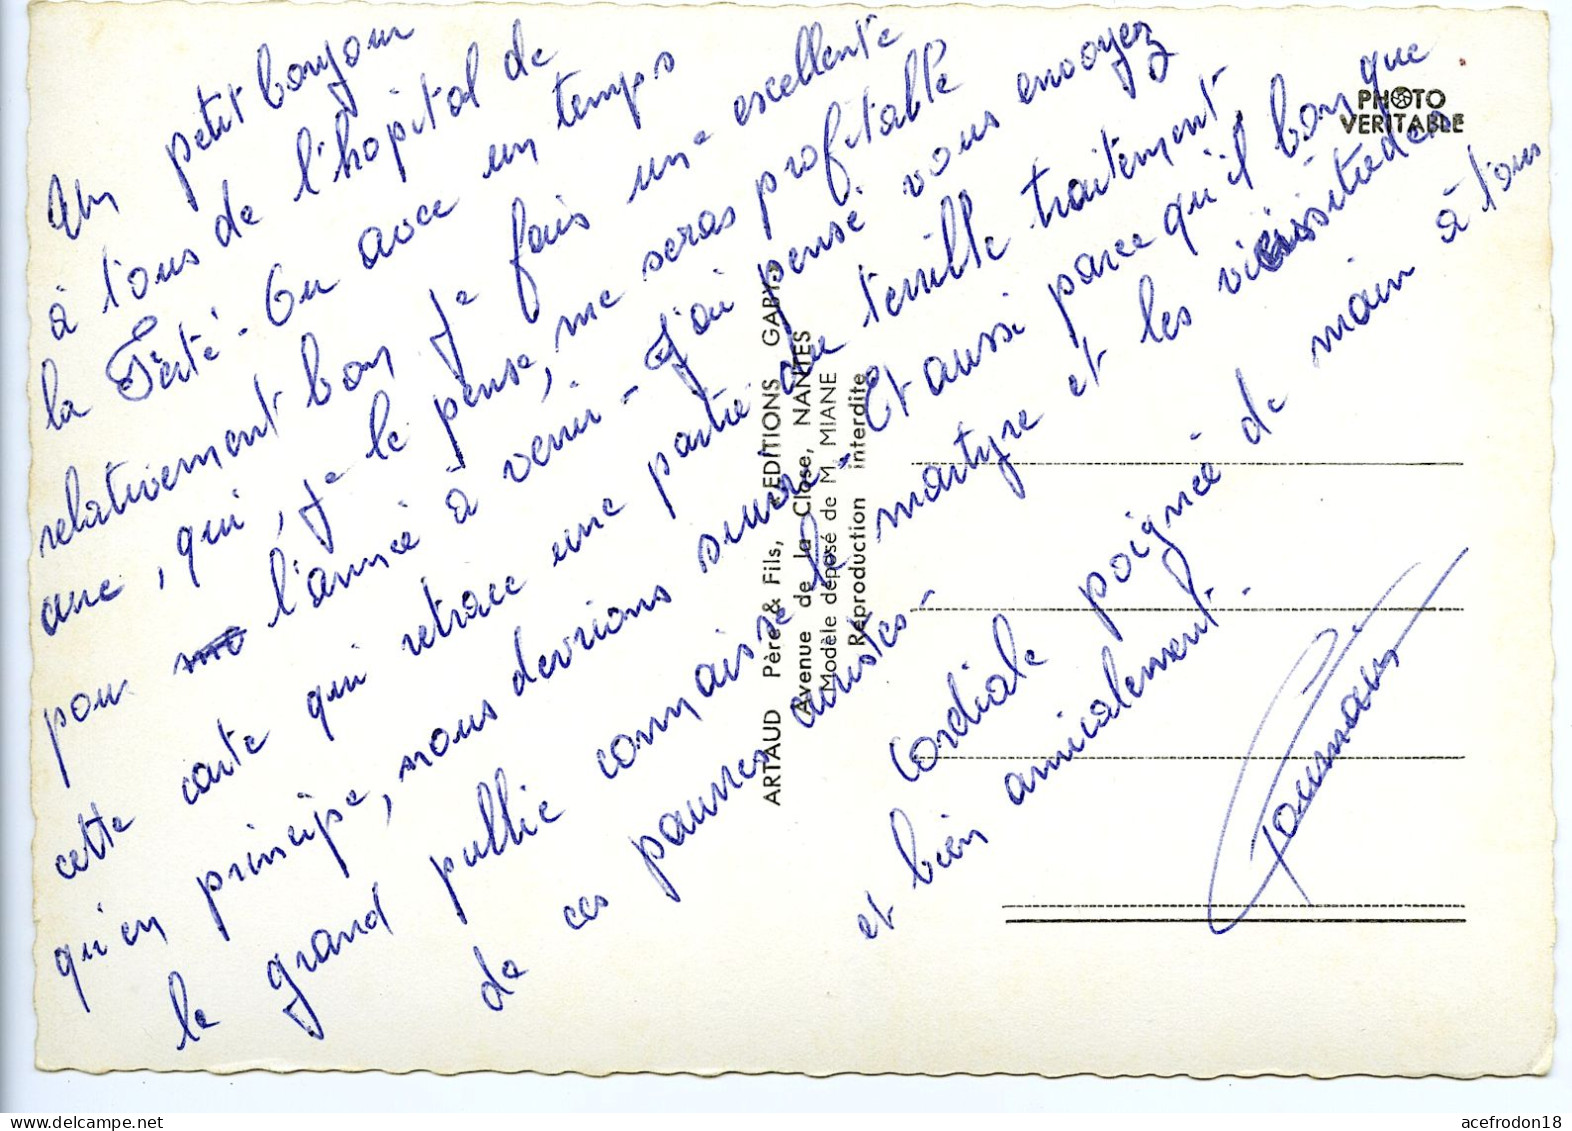 Un petit bonjour
à tous de l'hopital de
la Ferté - Ou avec un temps
relativement bon je fais une excellente
cure, qui, je le pense, me seras profitable
pour l'année à venir - J'ai pensé vous envoyez
cette carte qui retrace une partie du terrible traitement
qu'en principe, nous devrions suivre - Et aussi parce qu'il bon que
le grand public connaisse le martyre et les vicissitudes
de ces pauvres curistes -
Cordiale poignée de main à tous
et bien amicalement.
PHOTO
VERITABLE
ARTAUD Père & Fils, EDITIONS GABY
Avenue de la Close, NANTES
Modèle déposé de M. MIANE
Reproduction interdite
acefrodon18